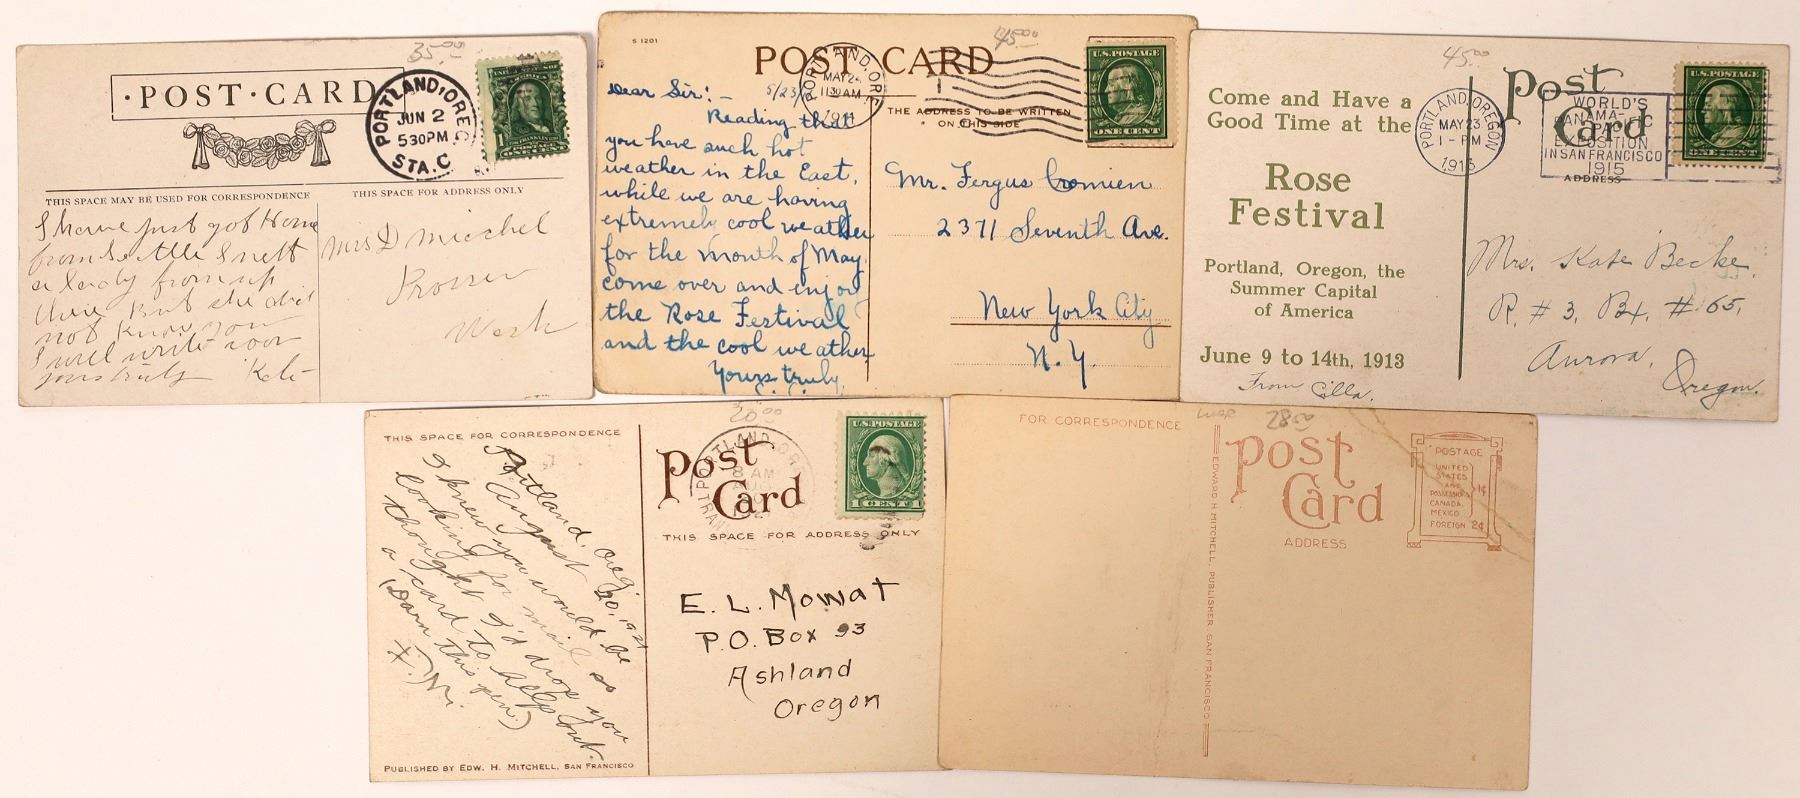 35.00
·POST·CARD
PORTLAND, OREG.
JUN 2
530PM
STA. C
THIS SPACE MAY BE USED FOR CORRESPONDENCE
THIS SPACE FOR ADDRESS ONLY
I have just got Home
from Seattle I mett
a lady from up
there But she did
not know you
I will write soon
yours truly
Mrs D Mischel
Prosser
Wash
S 1201
45.00
POST CARD
PORTLAND, ORE.
MAY 24
1130 AM
1911
U.S. POSTAGE
ONE CENT
THE ADDRESS TO BE WRITTEN
ON THIS SIDE
5/23/
Dear Sir:—
Reading that
you have such hot
weather in the East,
while we are having
extremely cool weather
for the month of May.
come over and enjoy
the Rose Festival
and the cool weather
Yours truly,
Mr. Fergus Cromien
2371 Seventh Ave.
New York City
N.Y.
45.00
Post
Card
ADDRESS
PORTLAND, OREGON
MAY 23
1 - PM
1913
WORLD'S
PANAMA-PACIFIC
EXPOSITION
IN SAN FRANCISCO
1915
U.S. POSTAGE
ONE CENT
Come and Have a
Good Time at the
Rose
Festival
Portland, Oregon, the
Summer Capital
of America
June 9 to 14th, 1913
From Cilla.
Mrs. Kate Becke.
R. # 3, Bx. # 65,
Aurora,
Oregon.
THIS SPACE FOR CORRESPONDENCE
20.00
Post
Card
PORTLAND, ORE
8 AM
U.S. POSTAGE
1 CENT 1
THIS SPACE FOR ADDRESS ONLY
Portland, Oreg.
August 20, 1921
I knew you would be
looking for mail so
thought I'd drop you
a card to help out.
(Darn this pen)
E. L. Mowat
P.O. Box 93
Ashland
Oregon
PUBLISHED BY EDW. H. MITCHELL, SAN FRANCISCO
FOR CORRESPONDENCE
EDWARD H. MITCHELL, PUBLISHER, SAN FRANCISCO
28.00
Post
Card
ADDRESS
POSTAGE
UNITED
STATES
AND
POSSESSIONS
CANADA,
MEXICO
1¢
FOREIGN 2¢